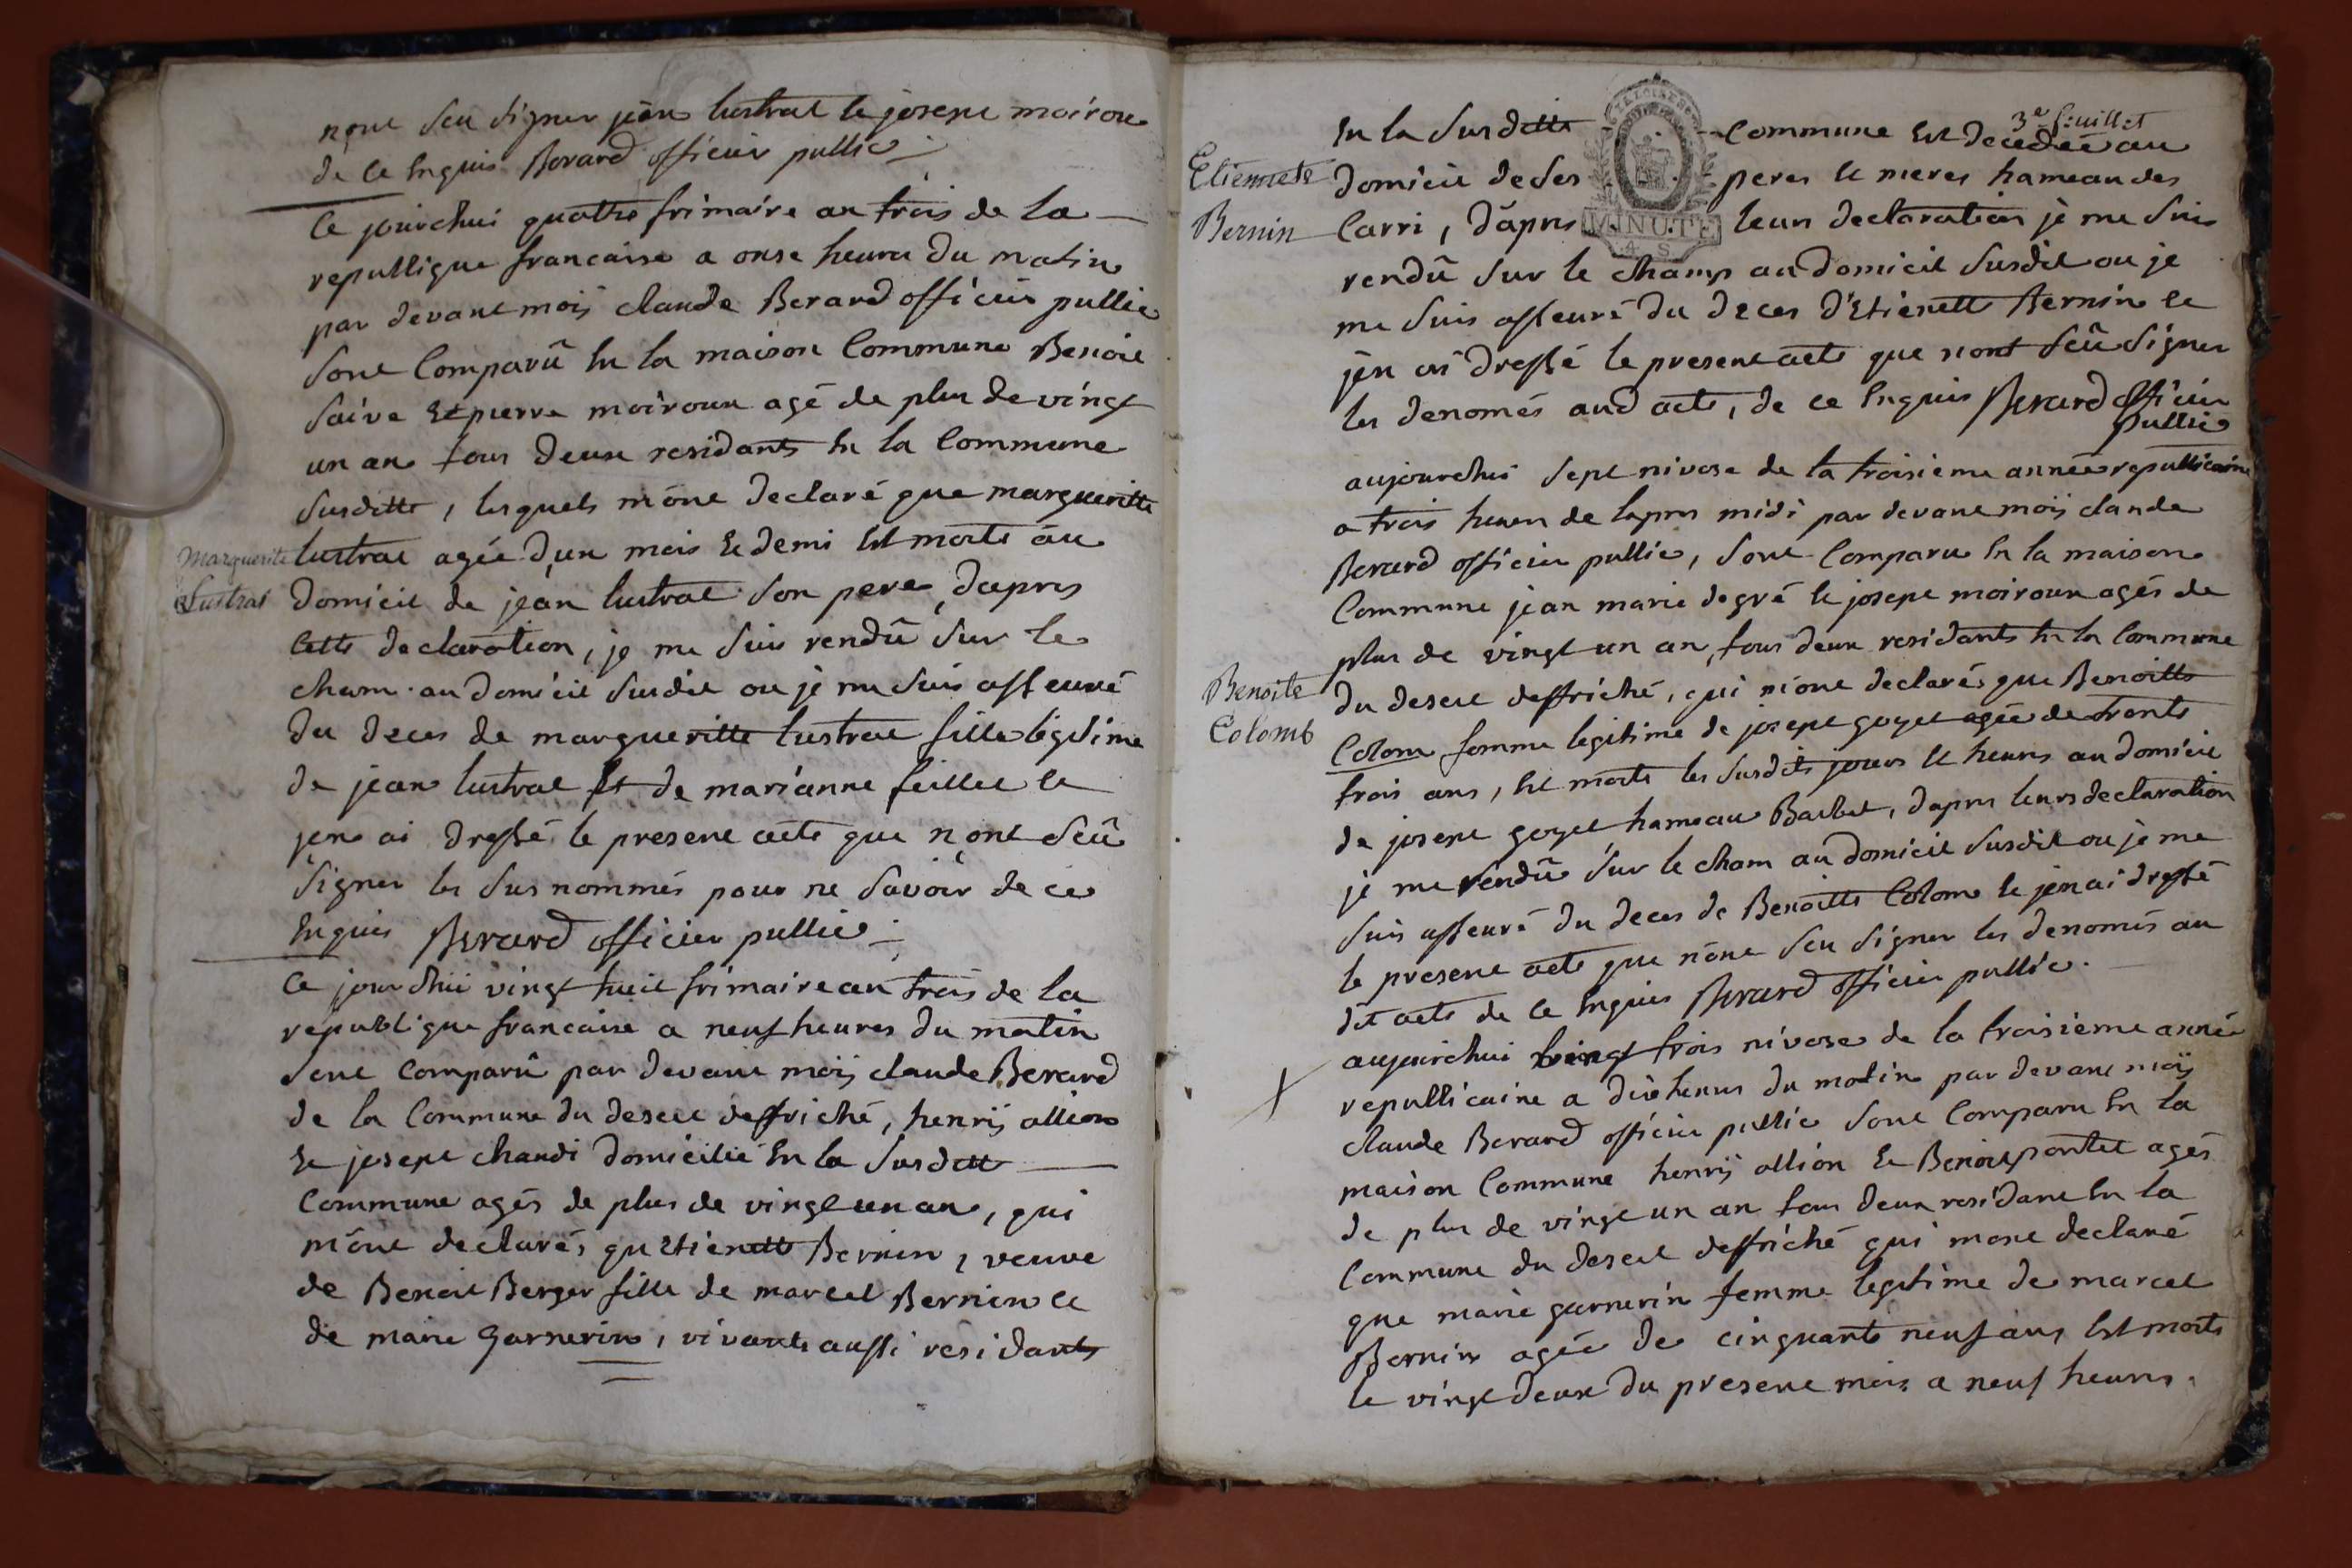 nont seu signer jean lustrat et josept moiroux
de ce enquis Berard officier public
Ce jourdhui quatre frimaire an trois de la
republique francaise a onse heures du matin
par devant moij claude Berard officier public
sont Comparû en la maison Commune Benoit
saive et pierre moiroux agé de plus de vingt
un an tous deux residants en la Commune
susditte, lesquels m'ont declaré que margueritte
Marguerite
Lustrat
lustrat agée d'un mois et demi est morte au
domicil de jean lustrat son pere, dapres
cette declaration, je me suis rendû sur le
cham au domicil susdit ou je me suis asseuré
du deces de margueritte lustrat fille légitime
de jean lustrat et de marianne feillet et
jen ai dressé le present acte que n'ont seû
signer les sus nommés pour ne savoir de ce
enquis Berard officier public
Ce jourdhui vingt huit frimaire an trois de la
republique francaise a neuf heures du matin
sont Comparû par devant moij claude Berard
de la Commune du desert deffriché, henrij allion
et josept chaudi domicilié en la susditte
Commune agés de plus de vingt un an, qui
m'ont declarés qu'Etienette Bernin, veuve
de Benoit Berger fille de marcel Bernin et
de marie Garnerin, vivants aussi residants
3e feuillet
en la susditte Commune est decedée au
Etiennete
Bernin
domicil de ses peres et meres hameau des
Carri, d'apres leurs declaration je me suis
MINUTE
4. S
rendû sur le champ au domicil susdit ou je
me suis asseuré du deces d'Etienette Bernin et
jen ai dressé le present acte que n'ont seû signer
les denomés aud acte, de ce enquis Berard officier
public
aujourdhui sept nivose de la troisieme année republicaine
a trois heures de lapres midi par devant moij claude
Berard officier public, sont Comparu en la maison
Commune jean marie degré et josept moiroux agés de
plus de vingt un an, tous deux residants en la Commune
Benoite
Colomb
du desert deffriché, qui m'ont declarés que Benoitte
Colom femme legitime de josept goyet agée de trente
trois ans, est morte les susdits jours et heures au domicil
de josept goyet hameau Barbet, dapres leurs declaration
je me rendû sur le cham au domicil susdit ou je me
suis asseuré du deces de Benoitte Colom et jen ai dressé
le present acte que n'ont seu signer les denomés au
dit acte de ce enquis Berard officier public.
aujourdhui vingt trois nivose de la troisieme année
republicaine a dix heures du matin par devant moij
claude Berard officier public sont Comparu en la
maison Commune henrij allion et Benoit pontet agés
de plus de vingt un an tous deux residant en la
Commune du desert deffriché qui mont declaré
que marie garnerin femme legitime de marcel
Bernin agée de cinquante neuf ans, est morte
le vingt deux du present mois a neuf heures.